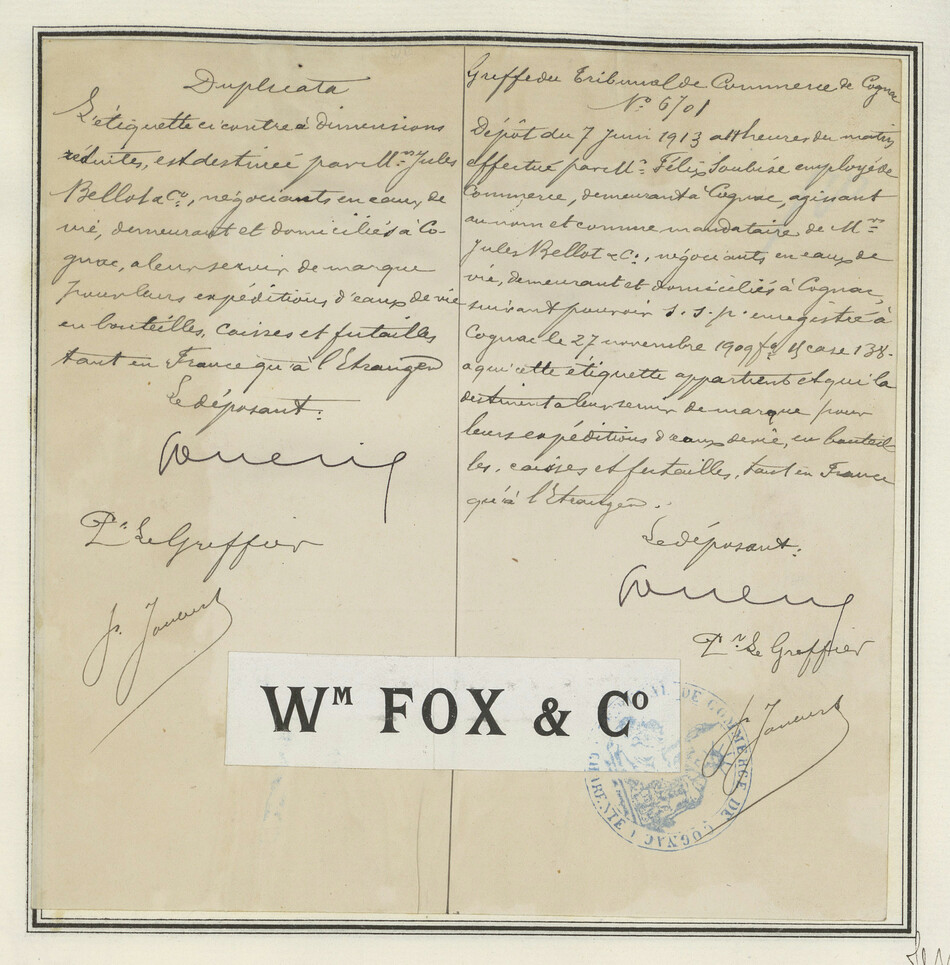 Duplicata
L'étiquette ci contre à dimensions
réduites, est destinée par M.rs Jules
Bellot & Co., négociants en eaux de
vie, demeurant et domiciliés à Co-
gnac, a leur servir de marque
pour leurs expéditions d'eaux de vie
en bouteilles, caisses et futailles
tant en France qu'à l'Etranger
Le déposant:
Pr. Le Greffier
Greffe du Tribunal de Commerce de Cognac
No. 6701
Dépôt du 7 Juin 1913 a heures du matin
effectué par Mr. Félix Soubise employé de
Commerce, demeurant à Cognac, agissant
au nom et comme mandataire de Mrs
Jules Bellot & Co., négociants en eaux de
vie, demeurant et domiciliés à Cognac,
suivant pouvoir s.s.p. enregistré à
Cognac le 27 novembre 1909 fo case 138.
a qui cette étiquette appartient et qui la
destinent a leur servir de marque pour
leurs expéditions d'eaux de vie, en bouteil
les, caisses et futailles, tant en France
qu'à l'Etranger.
Le déposant:
Pr Le Greffier
WM FOX & Co
TRIBUNAL DE COMMERCE DE COGNAC
CHARENTE